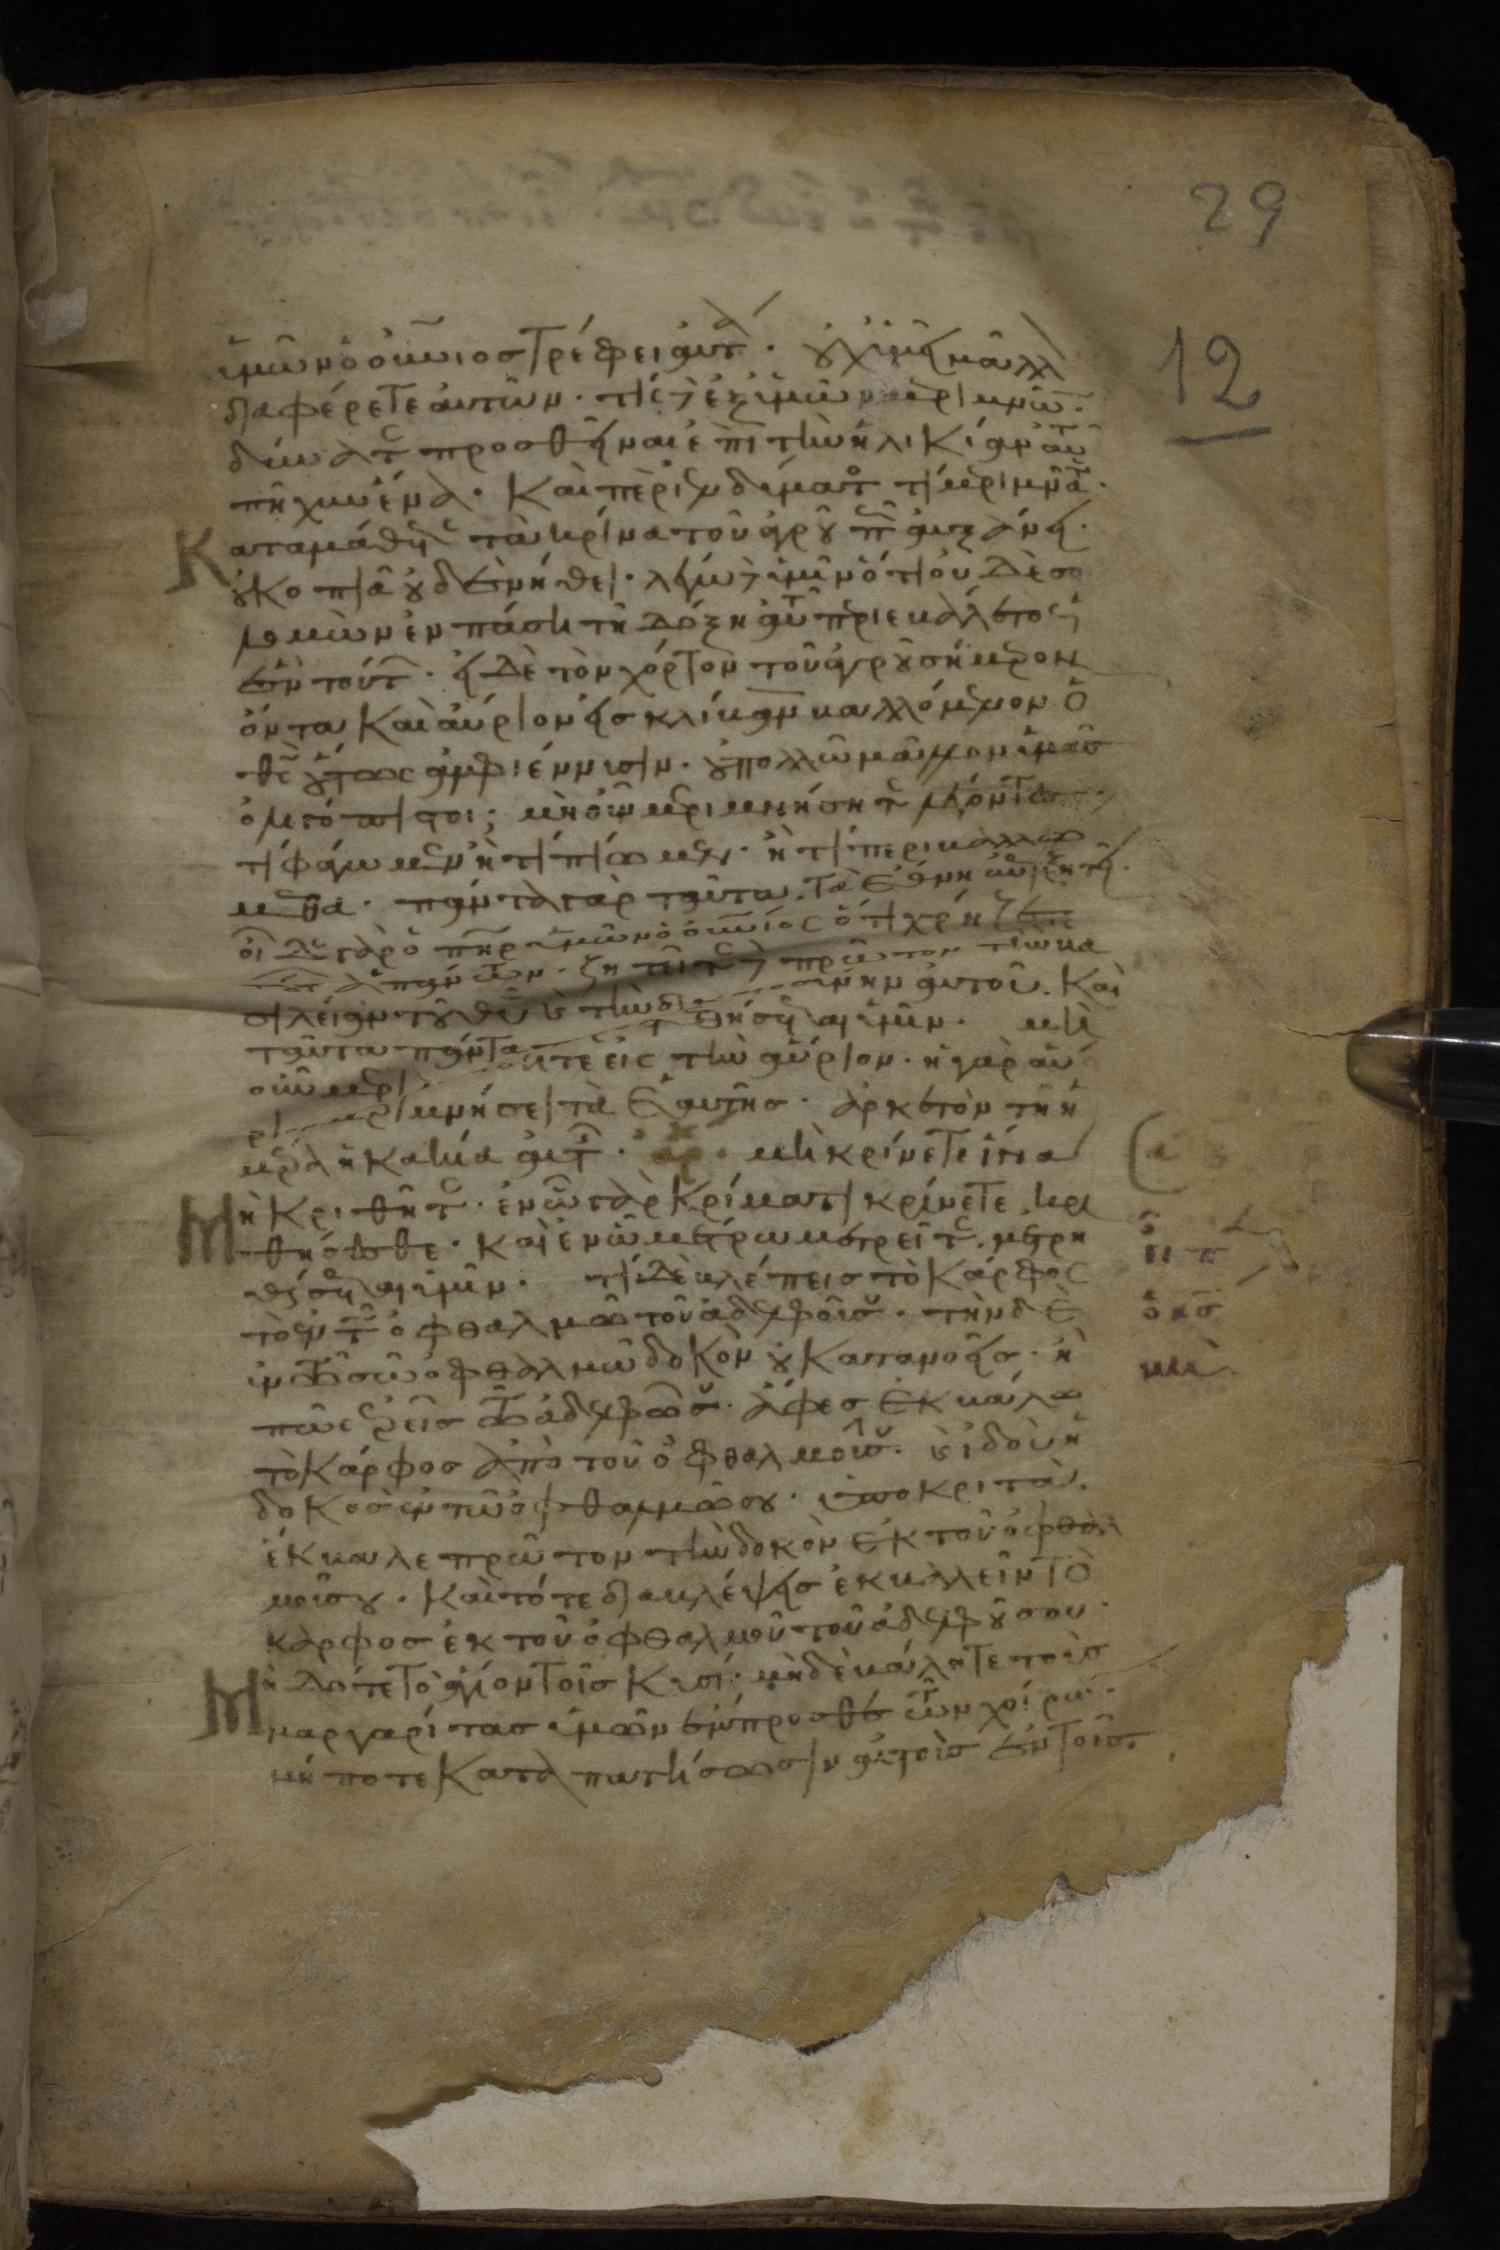 29
12
ὑμῶν ὁ οὐνιος τρέφει αὐτ· οὐχ ὑμεῖς μᾶλλ
διαφέρετε αὐτῶν· τίς δὲ ἐξ ὑμῶν μεριμνῶν
δύναται προσθεῖναι ἐπὶ τὴν ἡλικίαν αὐτ
πῆχυν ἕνα· Καὶ περὶ ἐνδύματος τί μεριμνᾶτ·
Καταμάθετε τὰ κρίνα τοῦ ἀγροῦ πῶς αὐξάνει·
οὐ κοπιᾶ οὐδὲ νήθει· λέγω δὲ ὑμῖν ὅτι οὐδὲ σο
λομὼν ἐν πάσῃ τῇ δόξῃ αὐτοῦ περιεβάλετο ὡς
ἓν τούτ· εἰ δὲ τὸν χόρτον τοῦ ἀγροῦ σήμερον
ὄντα Καὶ αὔριον εἰς κλίβανον βαλλόμενον ὁ
θς οὕτως ἀμφιέννυσιν· οὐ πολλῶ μᾶλλον ὑμᾶς
ὀλιγόπιστοι; μὴ οὖν μεριμνήσητε λέγοντες
τί φάγωμεν ἢ τί πίωμεν· ἢ τί περιβαλώ
μεθα· πάντα γὰρ ταῦτα τὰ ἔθνη ἐπιζητεῖ·
οἶδε γὰρ ὁ πηρ ὑμῶν ὁ οὐνιος ὅτι χρήζετε
ἁπάντων· ζητεῖτε δὲ πρῶτον τὴν βα
σιλείαν τοῦ θυ καὶ τὴν δι σύνην αὐτοῦ. Καὶ
ταῦτα πάντα τεθήσεται ὑμῖν· μὴ
οὖν μερι τε εἰς τὴν αὔριον· ἡ γὰρ αὔ
ρι μεριμνήσει τὰ ἑαυτῆς· ἀρκετὸν τῇ ἡ
μέρα ἡ κακία αὐτ· μὴ κρίνετε ἵνα
Μὴ κριθῆτε· ἐν ὧ γὰρ Κρίματι κρίνετε κρι
θήσεσθε· καὶ ἐν ὧ μέτρω μετρεῖτε· μετρη
θήσεται ὑμῖν· τί δὲ βλέπεις τὸ Κάρφος
τὸ ἐν τῶ ὀφθαλμῶ τοῦ ἀδελφοῦ σου· τὴν δὲ
ἐν τῶ σῶ ὀφθαλμῶ δοκὸν οὐ Κατανοεῖς· ἢ
πῶς ἐρεῖς τῶ ἀδελφῶ σου· ἄφες ἐκβάλω
τὸ Κάρφος ἀπὸ τοῦ ὀφθαλμοῦ σου· καὶ ἰδοὺ ἡ
δοκὸς ἐν τῶ ὀφθαλμῶ σου· ὑποκριτὰ·
ἔκβαλε πρῶτον τὴν δοκὸν ἐκ τοῦ ὀφθαλ
μοῦ σου· Καὶ τότε διαβλέψεις ἐκβαλεῖν τὸ
κάρφος ἐκ τοῦ ὀφθαλμοῦ τοῦ ἀδελφοῦ σου·
Μὴ δότε τὸ ἅγιον τοῖς Κυσί· μηδὲ βάλητε τοὺς
μαργαρίτας ὑμῶν ἔμπροσθεν τῶν χοίρων·
μήποτε Καταπατήσωσιν αὐτοὺς ἐν τοῖς